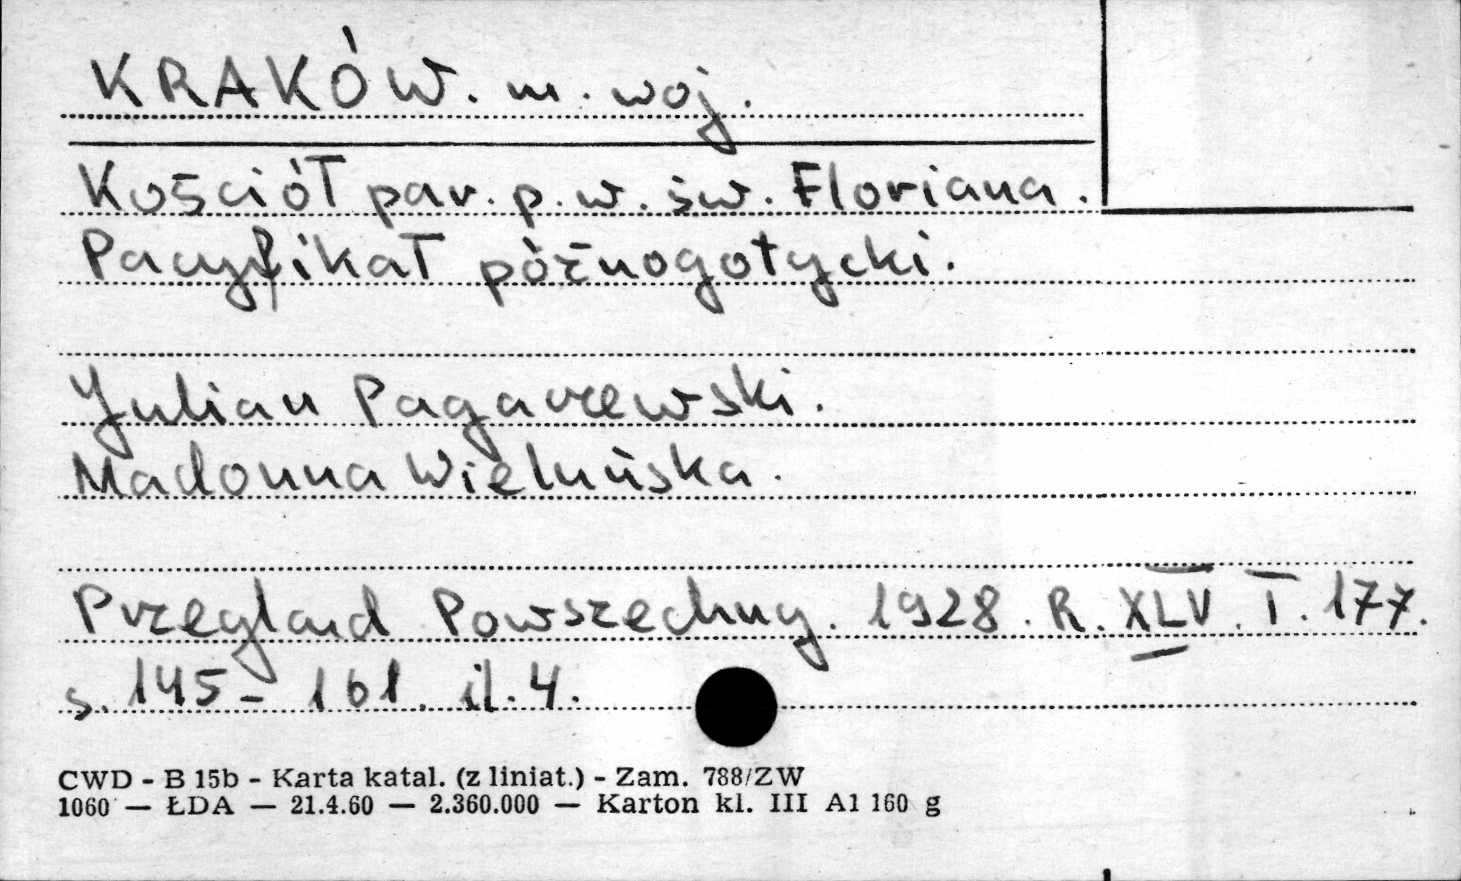 KRAKÓW. m. woj.
Kościół par. p. w. św. Floriana.
Pacyfikał późnogotycki.
Julian Pagaczewski.
Madonna Wieluńska.
Przegląd Powszechny. 1928. R. XLV. T. 177.
s. 145 - 161. il. 4.
CWD - B 15b - Karta katal. (z liniat.) - Zam. 788/ZW
1060 — ŁDA — 21.4.60 — 2.360.000 — Karton kl. III A1 160 g